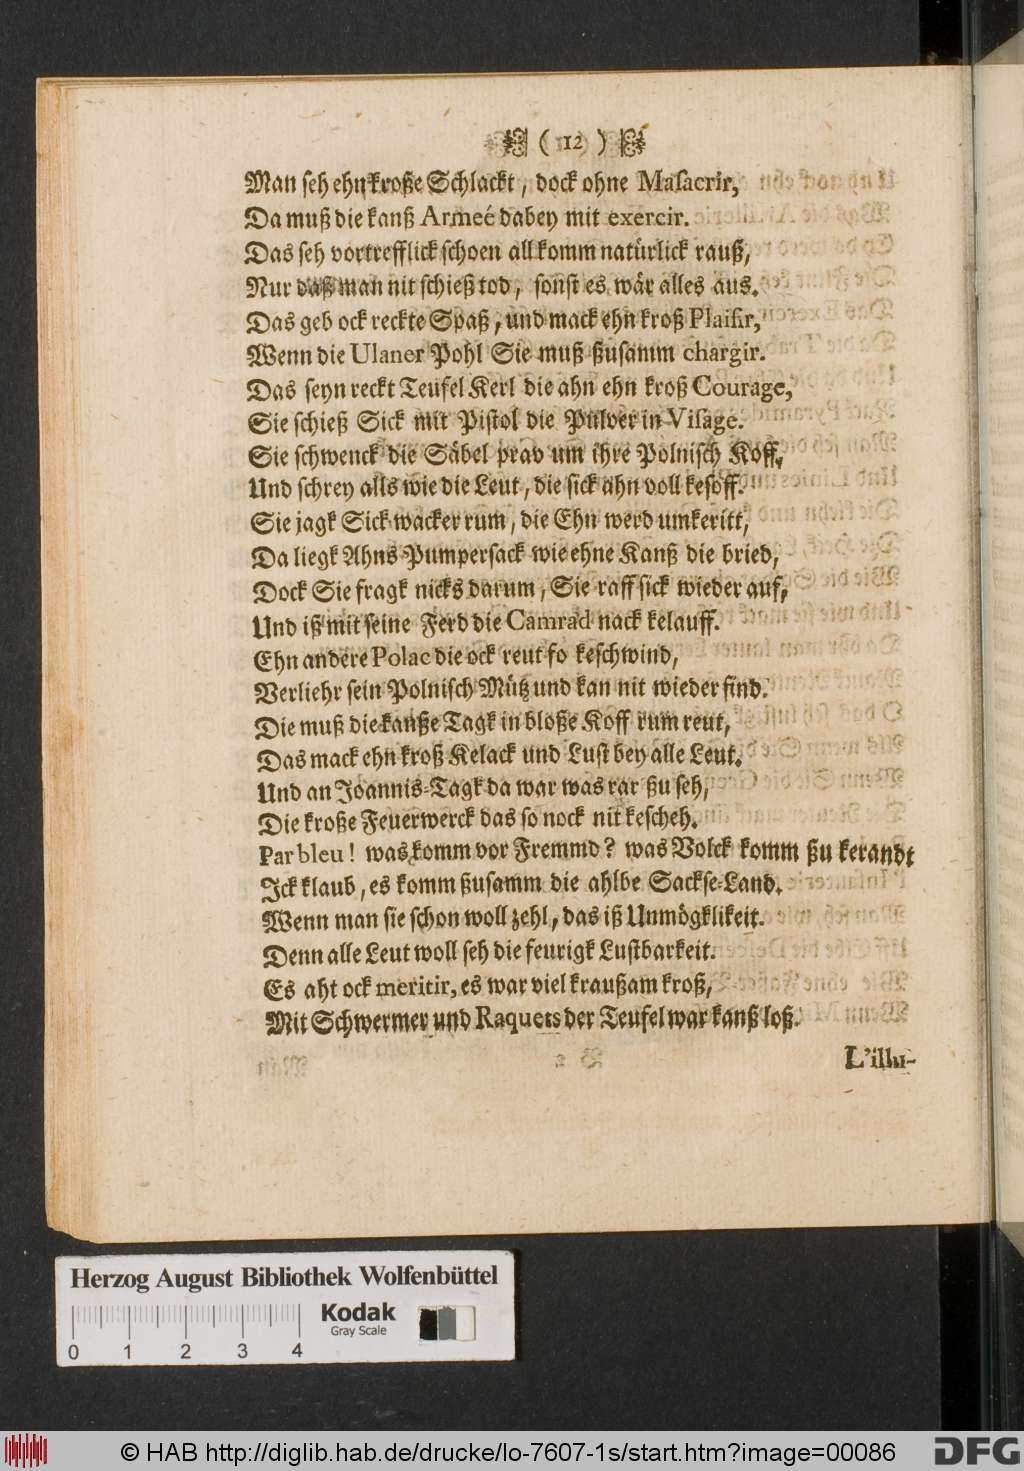 ( 12 )
Man seh ehn kroße Schlackt, dock ohne Masacrir,
Da muß die kanß Armeé dabey mit exercir.
Das seh vortrefflick schoen all komm natürlick rauß,
Nur daß man nit schieß tod, sonst es wär alles aus.
Das geb ock reckte Spaß, und mack ehn kroß Plaisir,
Wenn die Ulaner Pohl Sie muß ßusamm chargir.
Das seyn reckt Teufel Kerl die ahn ehn kroß Courage,
Sie schieß Sick mit Pistol die Pulver in Visage.
Sie schwenck die Säbel prav um ihre Polnisch Koff,
Und schrey alls wie die Leut, die sick ahn voll kesoff.
Sie jagk Sick wacker rum, die Ehn werd umkeritt,
Da liegk Ahns Pumpersack wie ehne Kanß die bried,
Dock Sie fragk nicks darum, Sie raff sick wieder auf,
Und iß mit seine Ferd die Camrad nack kelauff.
Ehn andere Polac die ock reut so keschwind,
Verliehr sein Polnisch Mütz und kan nit wieder find.
Die muß die kanße Tagk in bloße Koff rum reut,
Das mack ehn kroß Kelack und Lust bey alle Leut.
Und an Joannis-Tagk da war was rar ßu seh,
Die kroße Feuerwerck das so nock nit kescheh.
Par bleu! was komm vor Fremmd? was Volck komm ßu kerandt
Jck klaub, es komm ßusamm die ahlbe Sackse-Land.
Wenn man sie schon woll zehl, das iß Unmögklikeit.
Denn alle Leut woll seh die feurigk Lustbarkeit.
Es aht ock meritir, es war viel kraußam kroß,
Mit Schwermer und Raquets der Teufel war kanß loß.
L'illu-
Herzog August Bibliothek Wolfenbüttel
Kodak
Gray Scale
0 1 2 3 4
© HAB http://diglib.hab.de/drucke/lo-7607-1s/start.htm?image=00086
DFG